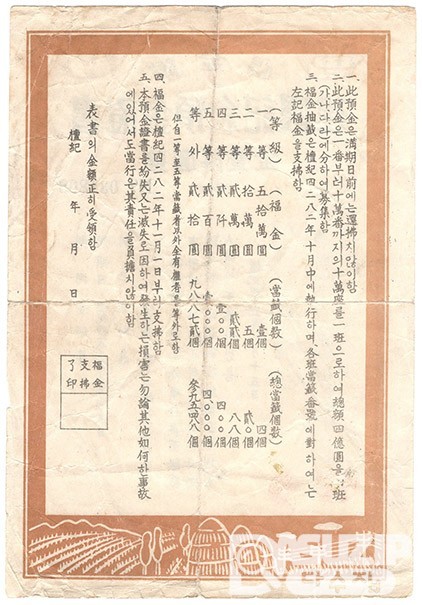 一. 此預金은滿期日前에는還拂치않이함
二. 此預金은一番부터十萬番까지의十萬座를一班으로하여總額四億圓을 班
(가나다라)에分하여募集함
三. 福金抽籤은檀紀四二八二年十月中에執行하며、各班當籤番號에對하여는
左記福金을支拂함
(等級) (福金) (當籤個數) (總當籤個數)
一等 五拾萬圓 壹個 四個
二等 拾萬圓 五個 貳〇個
三等 貳萬圓 貳貳個 八八個
四等 貳仟圓 壹〇〇個 四〇〇個
五等 貳百圓 壹〇〇〇個 四〇〇〇個
等外 貳拾圓 九八八七貳個 參九五四八八個
但自一等至五等當籤者以外全有權者를等外로함
四. 福金은檀紀四二八二年十一月一日부터支拂함
五. 本預金證書를紛失又는滅失로因하여發生하는損害는勿論其他如何한事故
에있어서도當行은其責任을負擔치않이함
表書의金額正히受領함
檀紀 年 月 日
福金
支拂
了印